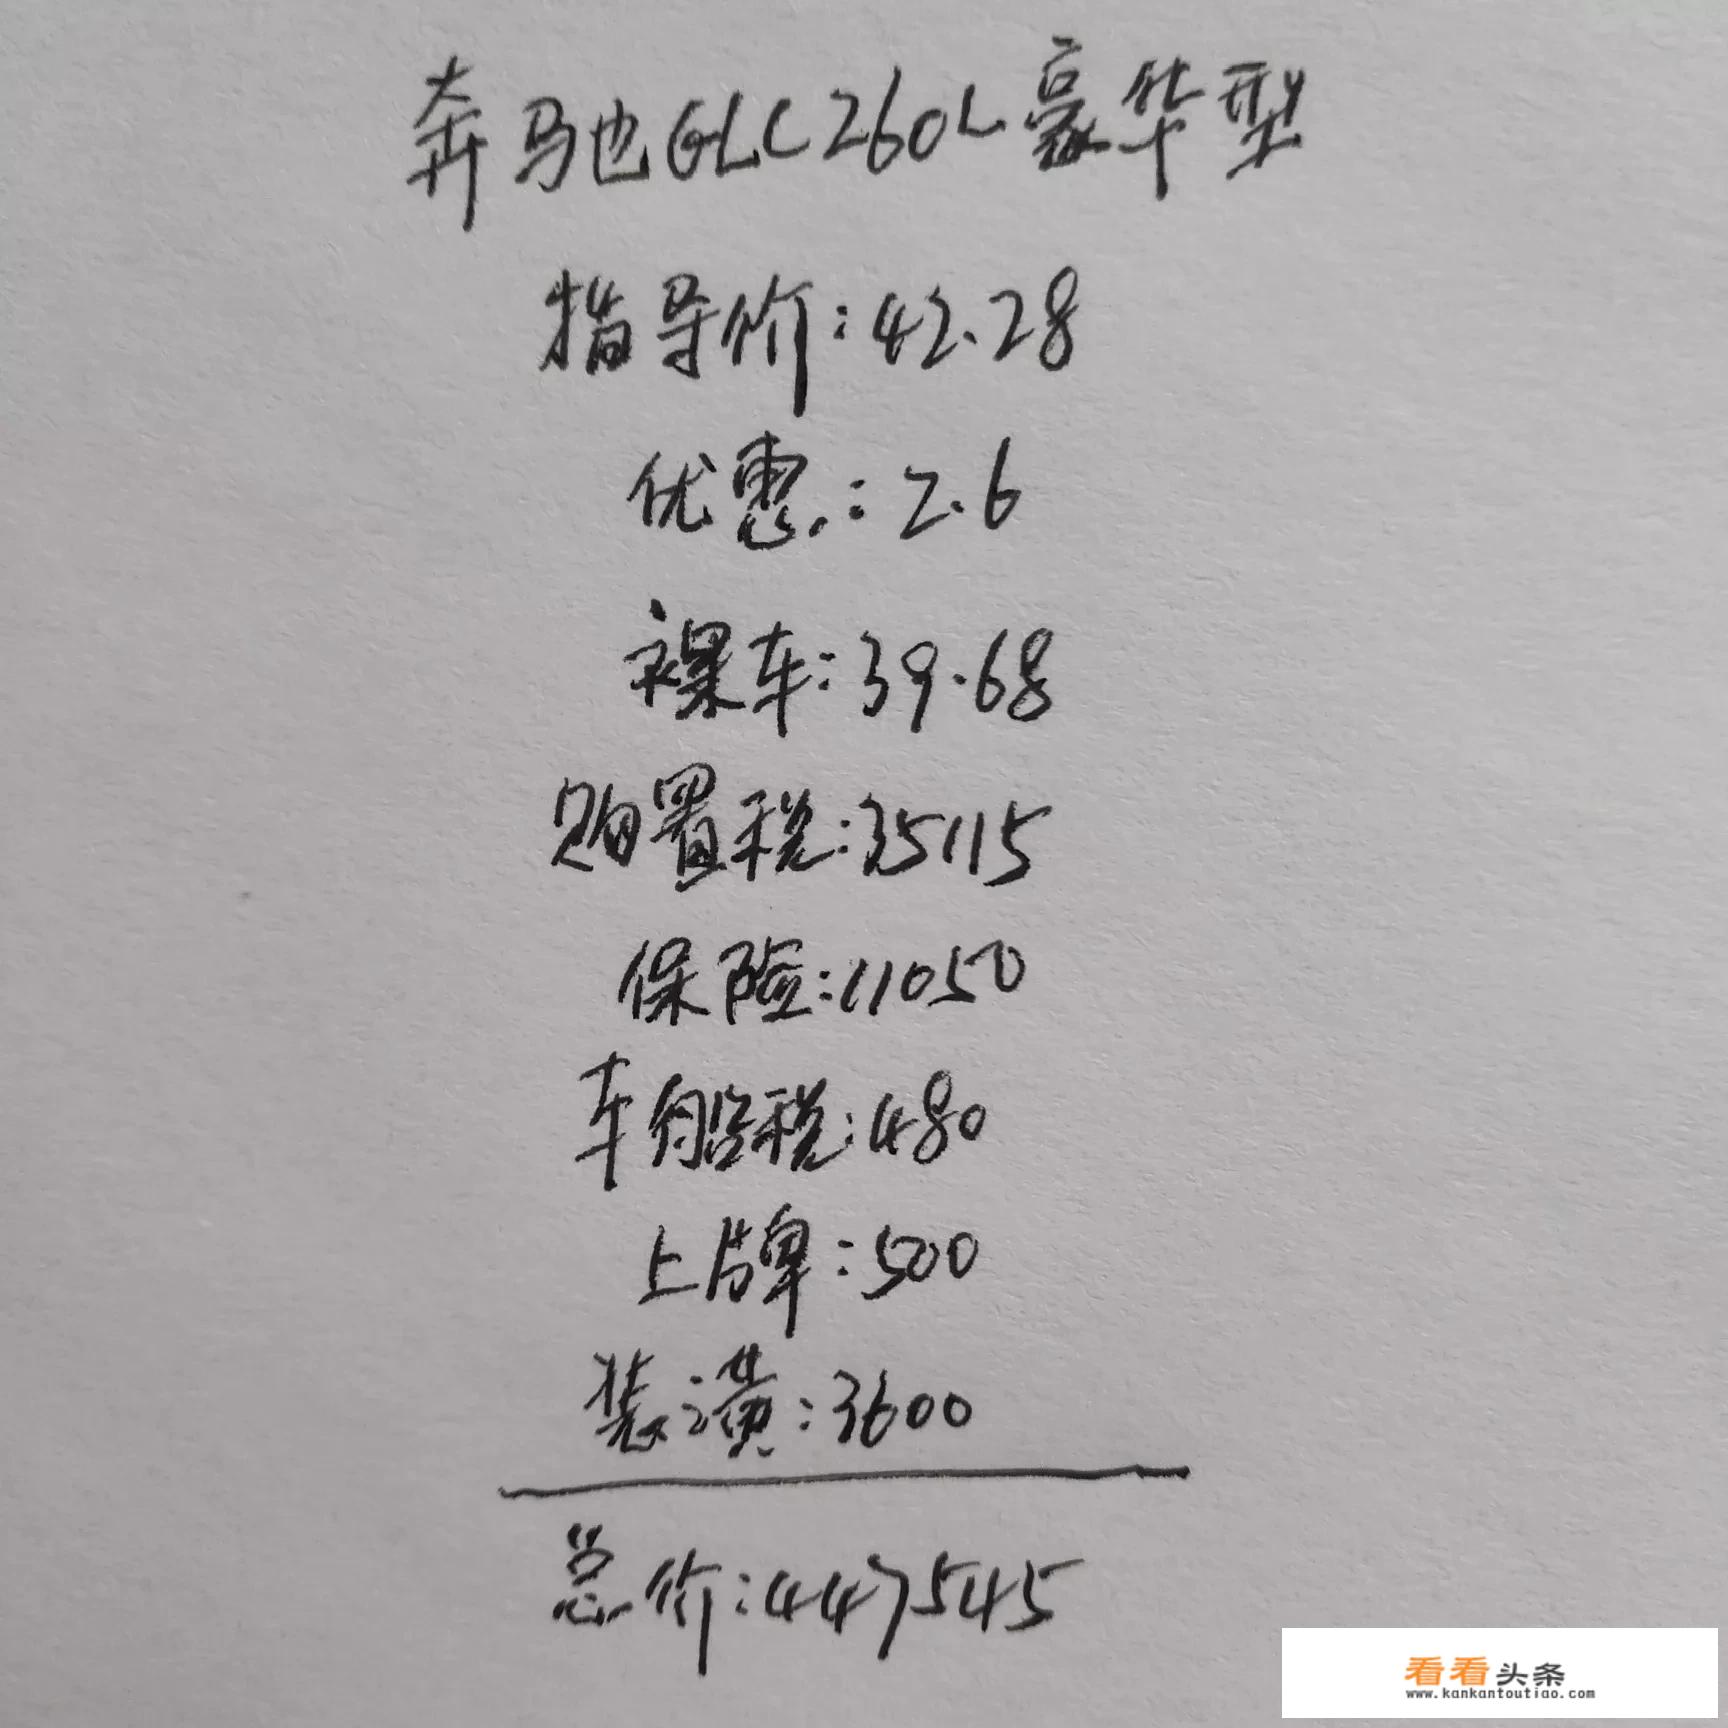 奔驰GLC260L豪华型
指导价:42.28
优惠:2.6
裸车:39.68
购置税:35115
保险:11050
车船税:480
上牌:500
装潢:3600
总价:447545
看看头条
www.kankantoutiao.com